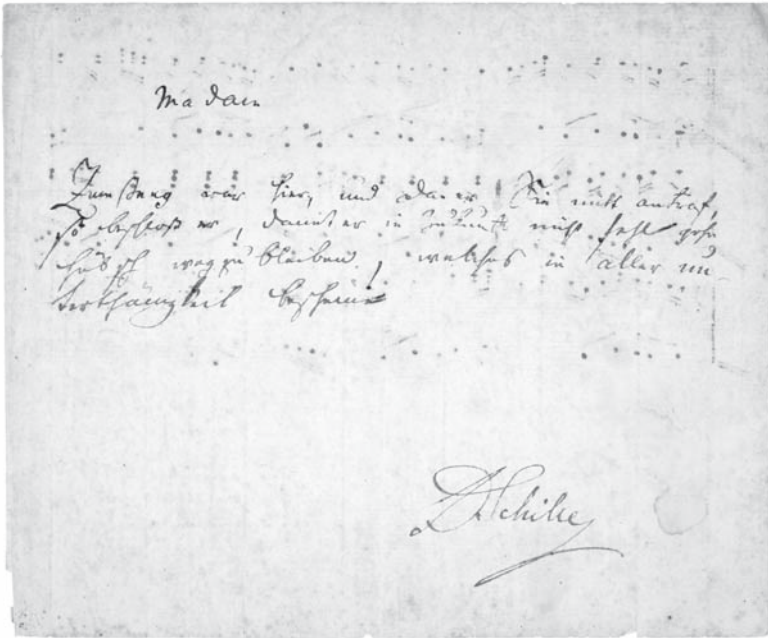 Madam
Zumsteeg war hier, und da er Sie nicht antraf,
so beschloß er, damit er in Zukunft nicht fehl gehe
hübsch wegzubleiben, welches in aller un-
terthänigkeit bescheint
DSchiller